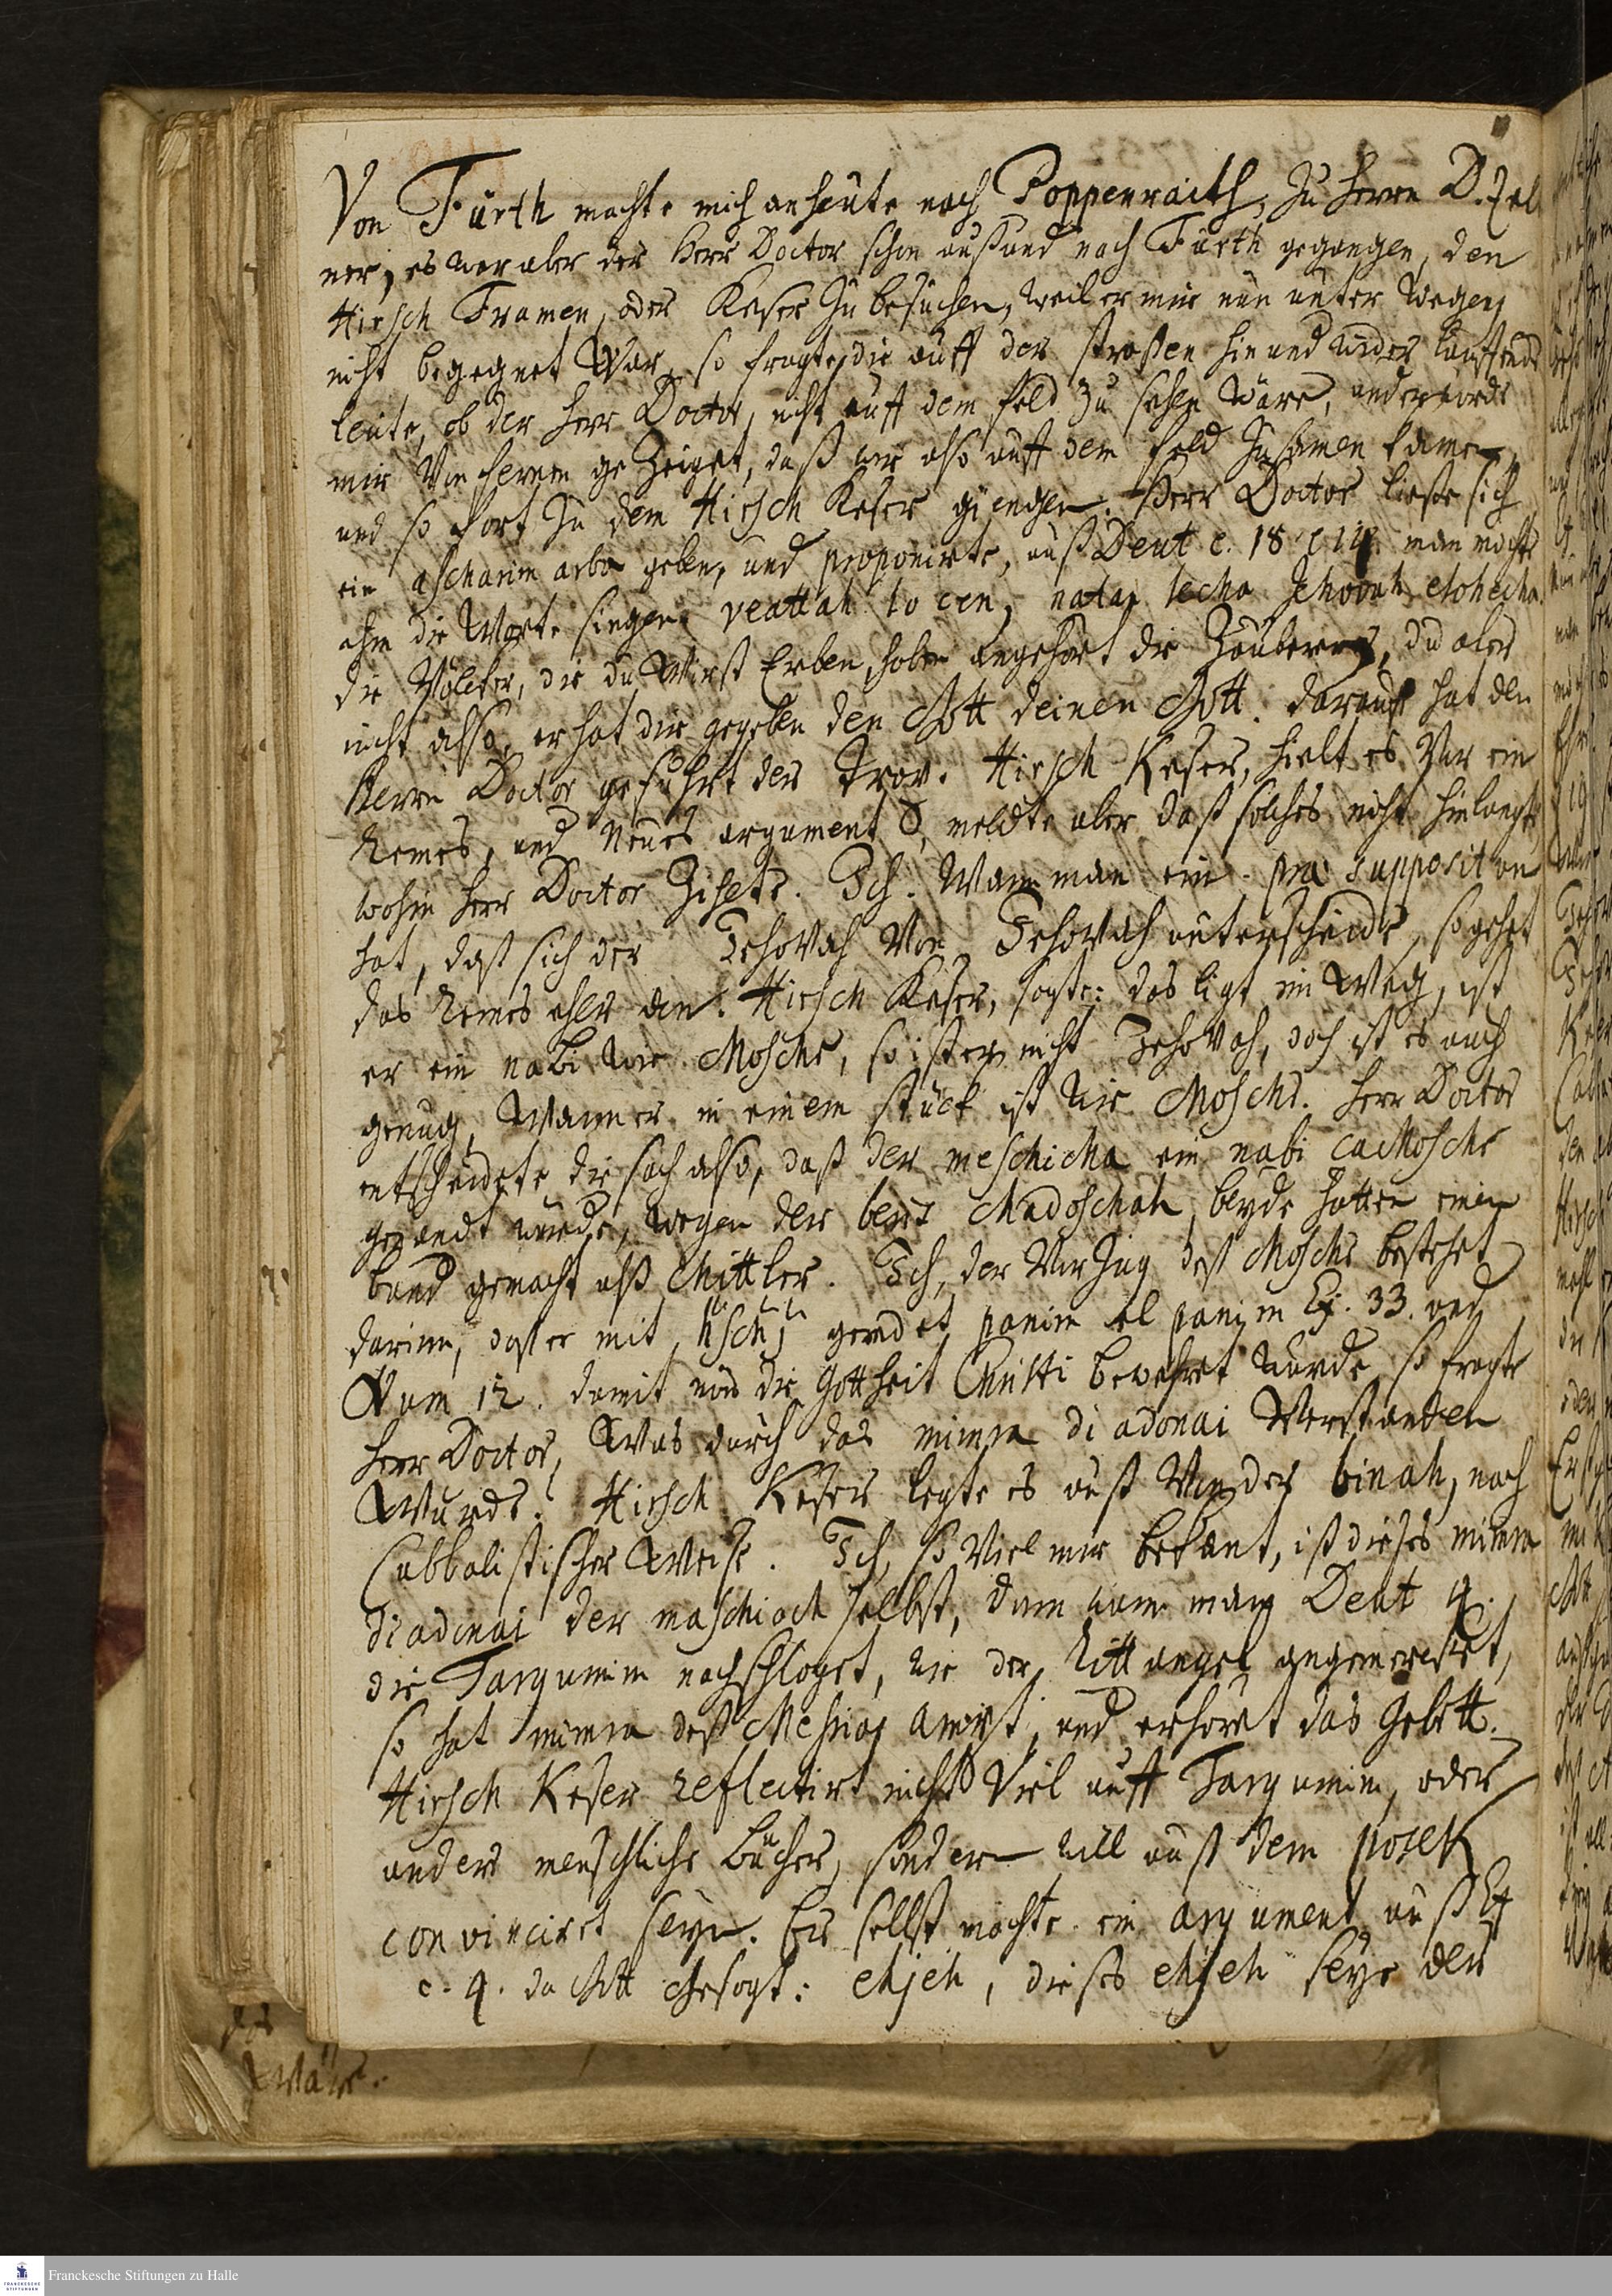 Von Fürth machte mich anheute nach Poppenraith, zu Herrn D. Zel
ner, es war aber der Herr Doctor schon auß und nach Fürth gegangen, den
Hirsch Framen, oder Keser zu besuchen, weil er mir nun unter wegen
nicht begegnet war, so fragte die auff der straßen hin und wider lauffende
leute, ob der Herr Doctor, nicht auff dem feld zu sehen wäre, und er wurde
mir von fernen gezeiget, daß wir also auff dem feld zusamen kamen,
und so fort zu dem Hirsch Keser giengen. Herr Doctor ließe sich
ein ascharim arba geben, und proponirte, auß Deut c. 18 14. man möchte
ihm die Worte sagen, veattah lo cen, natan lecha Jehovah elohecha.
die Völcker, die du wirst Erben, haben angehört die Zauberer, du aber
nicht also, er hat dir gegeben den Gott deinen Gott. darauff hat den
Herrn Doctor geführt der Hirsch Keser, hielt es vor ein
Remes, und neues argument, meldte aber daß solches nicht hinlangte
wohin Herr Doctor Zihete. Ich. Wann man ein præ supposit on
hat, daß sich der Jehovah von Jehovah unterscheide, so gehet
das Remes eher an. Hirsch Keser, sagte: das ligt im Weg, ist
er ein nabi wie Mosche, so ist er nicht Jehovah, doch ist es auch
genug, Wann er in einem stück ist wie Mosche. Herr Doctor
entscheidete die sach also, daß der meschicha ein nabi caMosche
genandt wurde, wegen der berit Chadoschah, beyde hatten einen
bund gemacht alß Mittler. Ich, der Vorzug deß Mosche bestehet
darinn, daß er mit geredet panim el panim Ex. 33. und
Num 12. damit nun die Gottheit Christi bewehret wurde, so fragte
Herr Doctor, Was durch das mimra di adonai Verstanden
Wurde? Hirsch Keser legte es auß Von der binah, nach
Cabbalistischer Weise. Ich, so viel mir bekant, ist dieses mimra
di adonai der maschiach selbst, dann wann man Deut 4.
die Targumim nachschlaget, wie der Rittangel angemercket,
so hat mimra deß Messiæ Ampt, und erhöret das Gebett.
Hirsch Keser reflectirt nicht Viel auff Targumim, oder
andere menschliche bücher, sondern will auß dem posek
convinciret seyn. Er selbst machte ein argument auß Ex
c. 4. da Gott Gesagt: ehjeh, dieses ehjeh seye der
das
Wäre.
Franckesche Stiftungen zu Halle